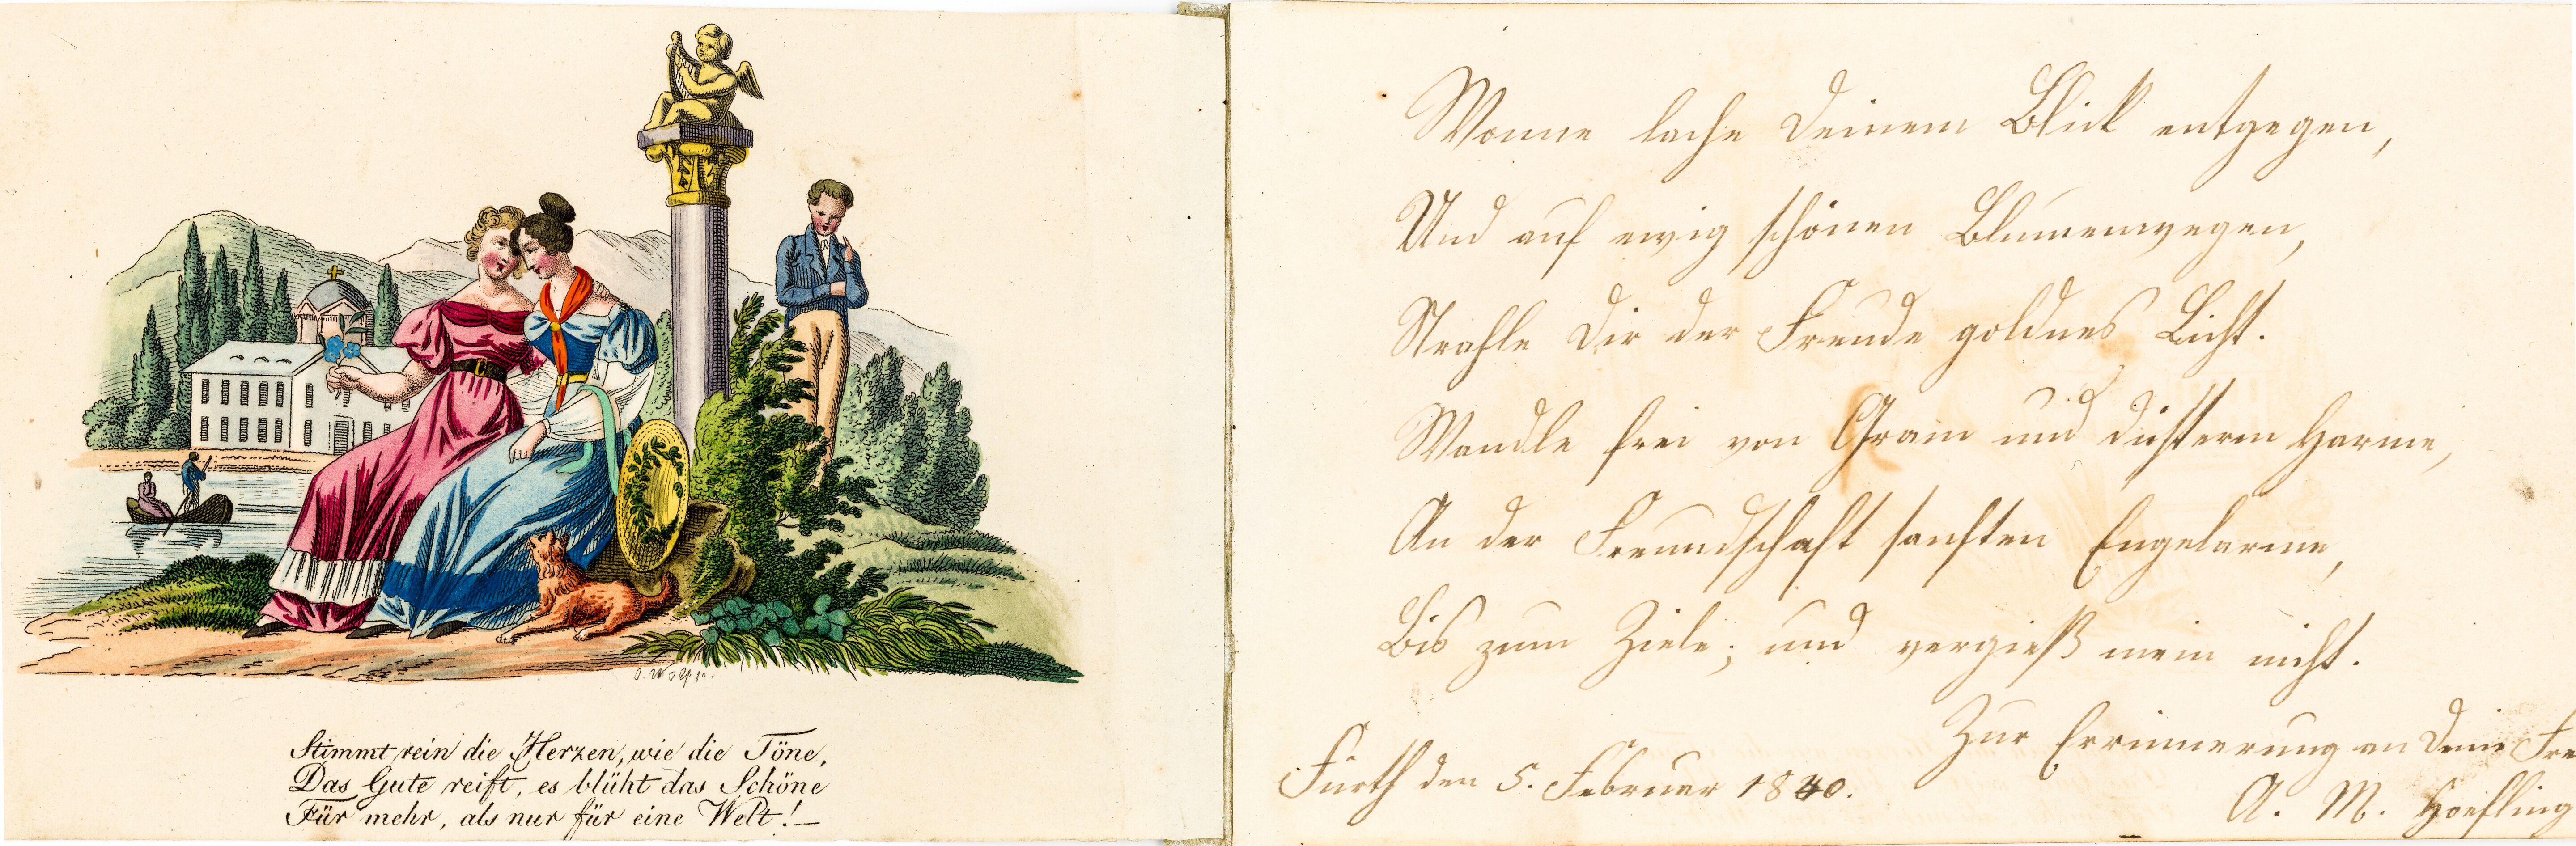 J. Wolf fc.
Stimmt rein die Herzen, wie die Töne,
Das Gute reift, es blüht das Schöne
Für mehr, als nur für eine Welt! —
Wonne lache Deinem Blick entgegen,
Und auf ewig schönen Blumenwegen,
Strahle Dir der Freude goldnes Licht.
Wandle frei von Gram und düsterm Harme,
An der Freundschaft sanften Engelarme,
Bis zum Ziele; und vergieß mein nicht.
Zur Errinnerung an Deine Fre
Fürth den 5. Februar 1840.
A. M. Hoefling